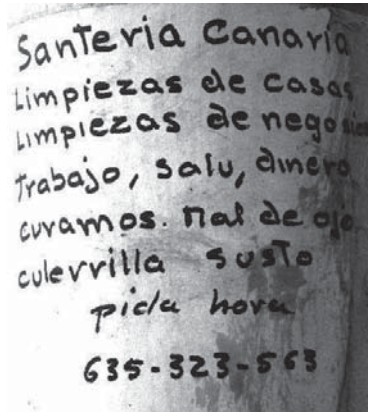 Santeria Canaria
Limpiezas de casas
Limpiezas de negosios
trabajo, salu, dinero
curamos. mal de ojo
culevrilla susto
pida hora
635-323-563